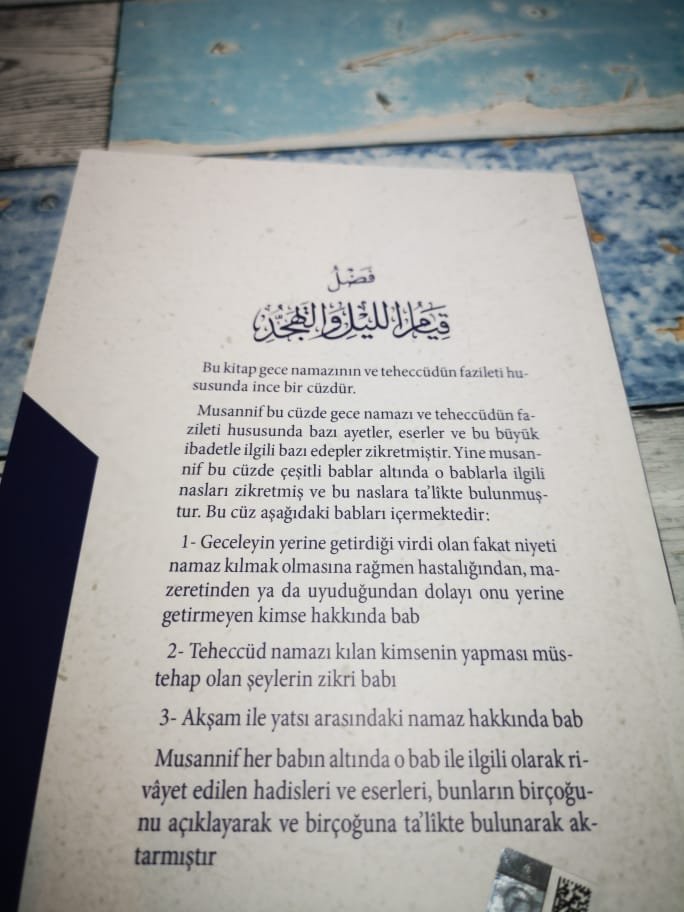 فَضْلُ
قِيَامُ اللَّيْلِ وَالتَّهَجُّدِ
Bu kitap gece namazının ve teheccüdün fazileti hu-
susunda ince bir cüzdür.
Musannif bu cüzde gece namazı ve teheccüdün fa-
zileti hususunda bazı ayetler, eserler ve bu büyük
ibadetle ilgili bazı edepler zikretmiştir. Yine musan-
nif bu cüzde çeşitli bablar altında o bablarla ilgili
nasları zikretmiş ve bu naslara ta'lîkte bulunmuş-
tur. Bu cüz aşağıdaki babları içermektedir:
1- Geceleyin yerine getirdiği virdi olan fakat niyeti
namaz kılmak olmasına rağmen hastalığından, ma-
zeretinden ya da uyuduğundan dolayı onu yerine
getirmeyen kimse hakkında bab
2- Teheccüd namazı kılan kimsenin yapması müs-
tehap olan şeylerin zikri babı
3- Akşam ile yatsı arasındaki namaz hakkında bab
Musannif her babın altında o bab ile ilgili olarak ri-
vâyet edilen hadisleri ve eserleri, bunların birçoğu-
nu açıklayarak ve birçoğuna ta'lîkte bulunarak ak-
tarmıştır